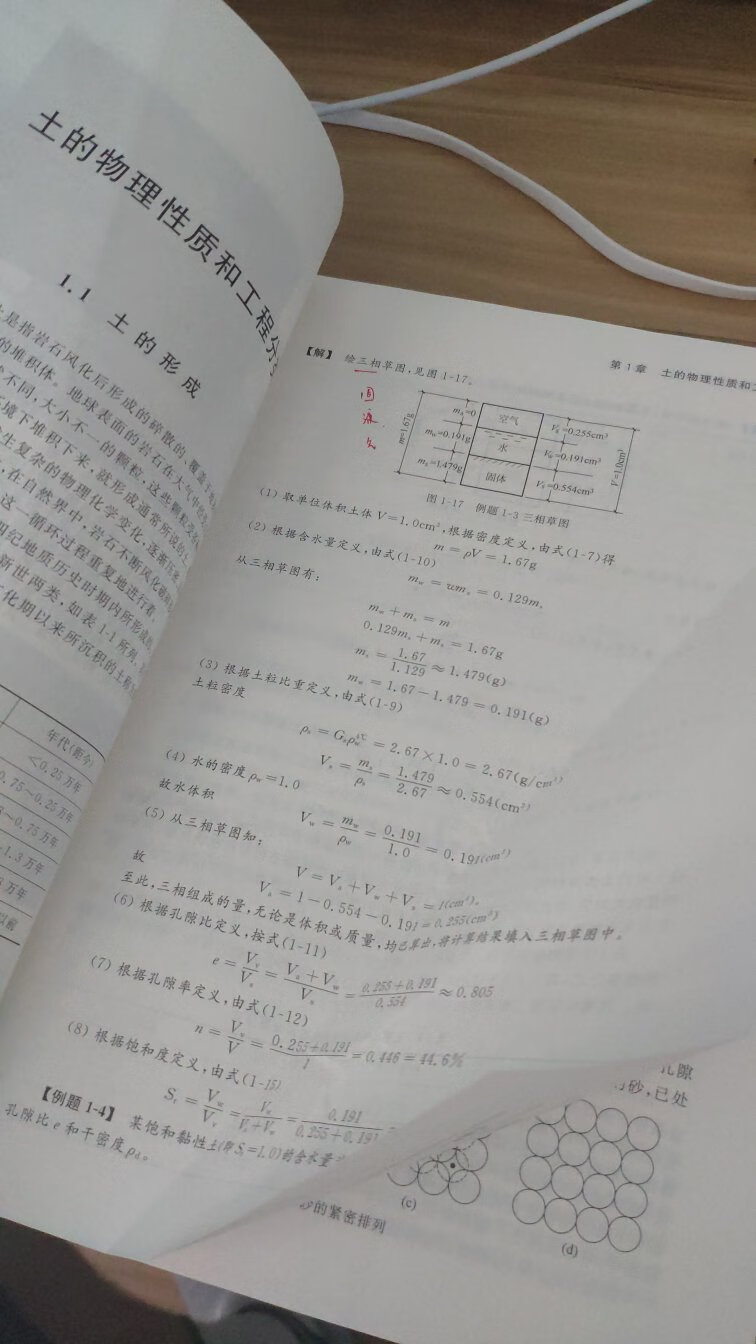 土的物理性质和工程分
1.1 土的形成
是指岩石风化后形成的碎散的、覆盖
的堆积体。地球表面的岩石在大气中
不同,大小不一的颗粒,这些颗粒
环境下堆积下来,就形成通常所说的土
生复杂的物理化学变化,逐渐
,在自然界中,岩石不断风化
这一循环过程重复地进行着
四纪地质历史时期内所形成
新世两类,如表1-1所列。
化期以来所沉积的土
年代(距今)
<0.25万年
0.75~0.25万年
~0.75万年
1.3万年
万年
以前
第1章 土的物理性质和工
【解】 绘三相草图,见图1-17。
固
液
气
m=1.67g
mₐ=0
m_w=0.191g
m_s=1.479g
空气
水
固体
Vₐ=0.255cm³
V_w=0.191cm³
V_s=0.554cm³
V=1.0cm³
图1-17 例题1-3三相草图
(1) 取单位体积土体V=1.0cm³,根据密度定义,由式(1-7)得
m = ρV = 1.67g
(2) 根据含水量定义,由式(1-10)
m_w = wm_s = 0.129m_s
从三相草图有:
m_w + m_s = m
0.129m_s + m_s = 1.67g
m_s = 1.67/1.129 ≈ 1.479(g)
m_w = 1.67 - 1.479 = 0.191(g)
(3) 根据土粒比重定义,由式(1-9)
土粒密度
ρ_s = G_sρ_w^4℃ = 2.67×1.0 = 2.67(g/cm³)
V_s = m_s/ρ_s = 1.479/2.67 ≈ 0.554(cm³)
(4) 水的密度ρ_w=1.0
故水体积
V_w = m_w/ρ_w = 0.191/1.0 = 0.191(cm³)
(5) 从三相草图知:
V = Vₐ + V_w + V_s = 1(cm³)。
故
Vₐ = 1 - 0.554 - 0.191 = 0.255(cm³)
至此,三相组成的量,无论是体积或质量,均已算出,将计算结果填入三相草图中。
(6) 根据孔隙比定义,按式(1-11)
e = V_v/V_s = (Vₐ+V_w)/V_s = (0.255+0.191)/0.554 ≈ 0.805
(7) 根据孔隙率定义,由式(1-12)
n = V_v/V = (0.255+0.191)/1 = 0.446 = 44.6%
(8) 根据饱和度定义,由式(1-15)
S_r = V_w/V_v = V_w/(Vₐ+V_w) = 0.191/(0.255+0.191)
【例题1-4】 某饱和黏性土(即S_r=1.0)的含水量
孔隙比e和干密度ρ_d。
孔隙
砂,已处
(c)
(d)
的紧密排列